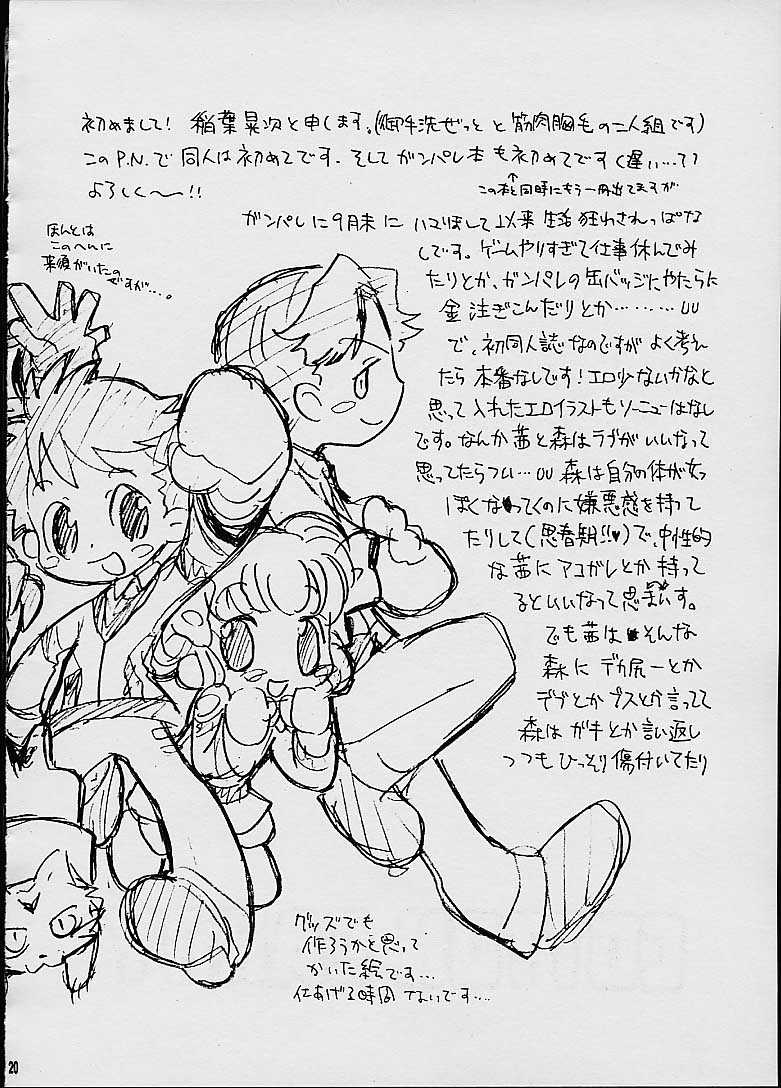 初めまして! 稲葉晃次と申します。(御手洗ぜっと と 筋肉胸毛の二人組です)
このP.N.で同人は初めてです。そしてガンパレ本も初めてです(遅い…??
よろしく〜〜!!
↑この本と同時にもう一冊出てますが
ガンパレに9月末に ハマりまして以来 生活狂わされっぱな
しです。ゲームやりすぎて仕事休んでみ
たりとか、ガンパレの缶バッジにやたらに
金注ぎこんだりとか………UU
で、初同人誌なのですが よく考え
たら 本番なしです!エロ少ないかなと
思って入れたエロイラストもソーニューはなし
です。なんか茜と森はラブがいいなって
思ってたらつい…UU 森は自分の体が女っ
ぽくなってくのに嫌悪感を持って
たりして(思春期!!♥)で、中性的
な茜にアコガレとか持って
るといいなって思います。
でも茜はそんな
森にデカ尻ーとか
デブとかブスとか言ってて
森はガキとか言い返し
つつもひっそり傷付いてたり
ほんとは
このへんに
来須がいたの
ですが…。
グッズでも
作ろうかと思って
かいた絵です…
仕あげる時間 ないです…
20